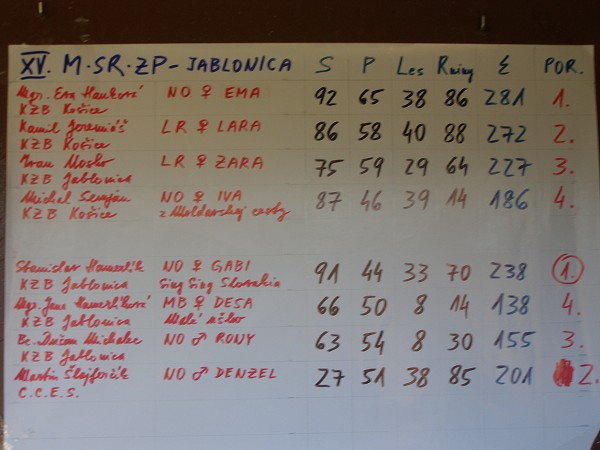 XV. M·SR·ZP-JABLONICA S P Les Ruiny Σ POR.
Mgr. Eva Hauková NO ♀ EMA 92 65 38 86 281 1.
KZB Košice
Kamil Jeremiáš LR ♀ LARA 86 58 40 88 272 2.
KZB Košice
Ivan LR ♀ ZARA 75 59 29 64 227 3.
KZB Jablonica
Michal NO ♀ IVA 87 46 39 14 186 4.
KZB Košice z Moldavskej cesty
Stanislav Hamerlík NO ♀ GABI 91 44 33 70 238 1.
KZB Jablonica Sing Sing Slovakia
Mgr. Jana Hamerlíková MB ♀ DESA 66 50 8 14 138 4.
KZB Jablonica Malé
Bc. Dušan Michalec NO ♂ RONY 63 54 8 30 155 3.
KZB Jablonica
Martin NO ♂ DENZEL 27 51 38 85 201 2.
C.C.E.S.